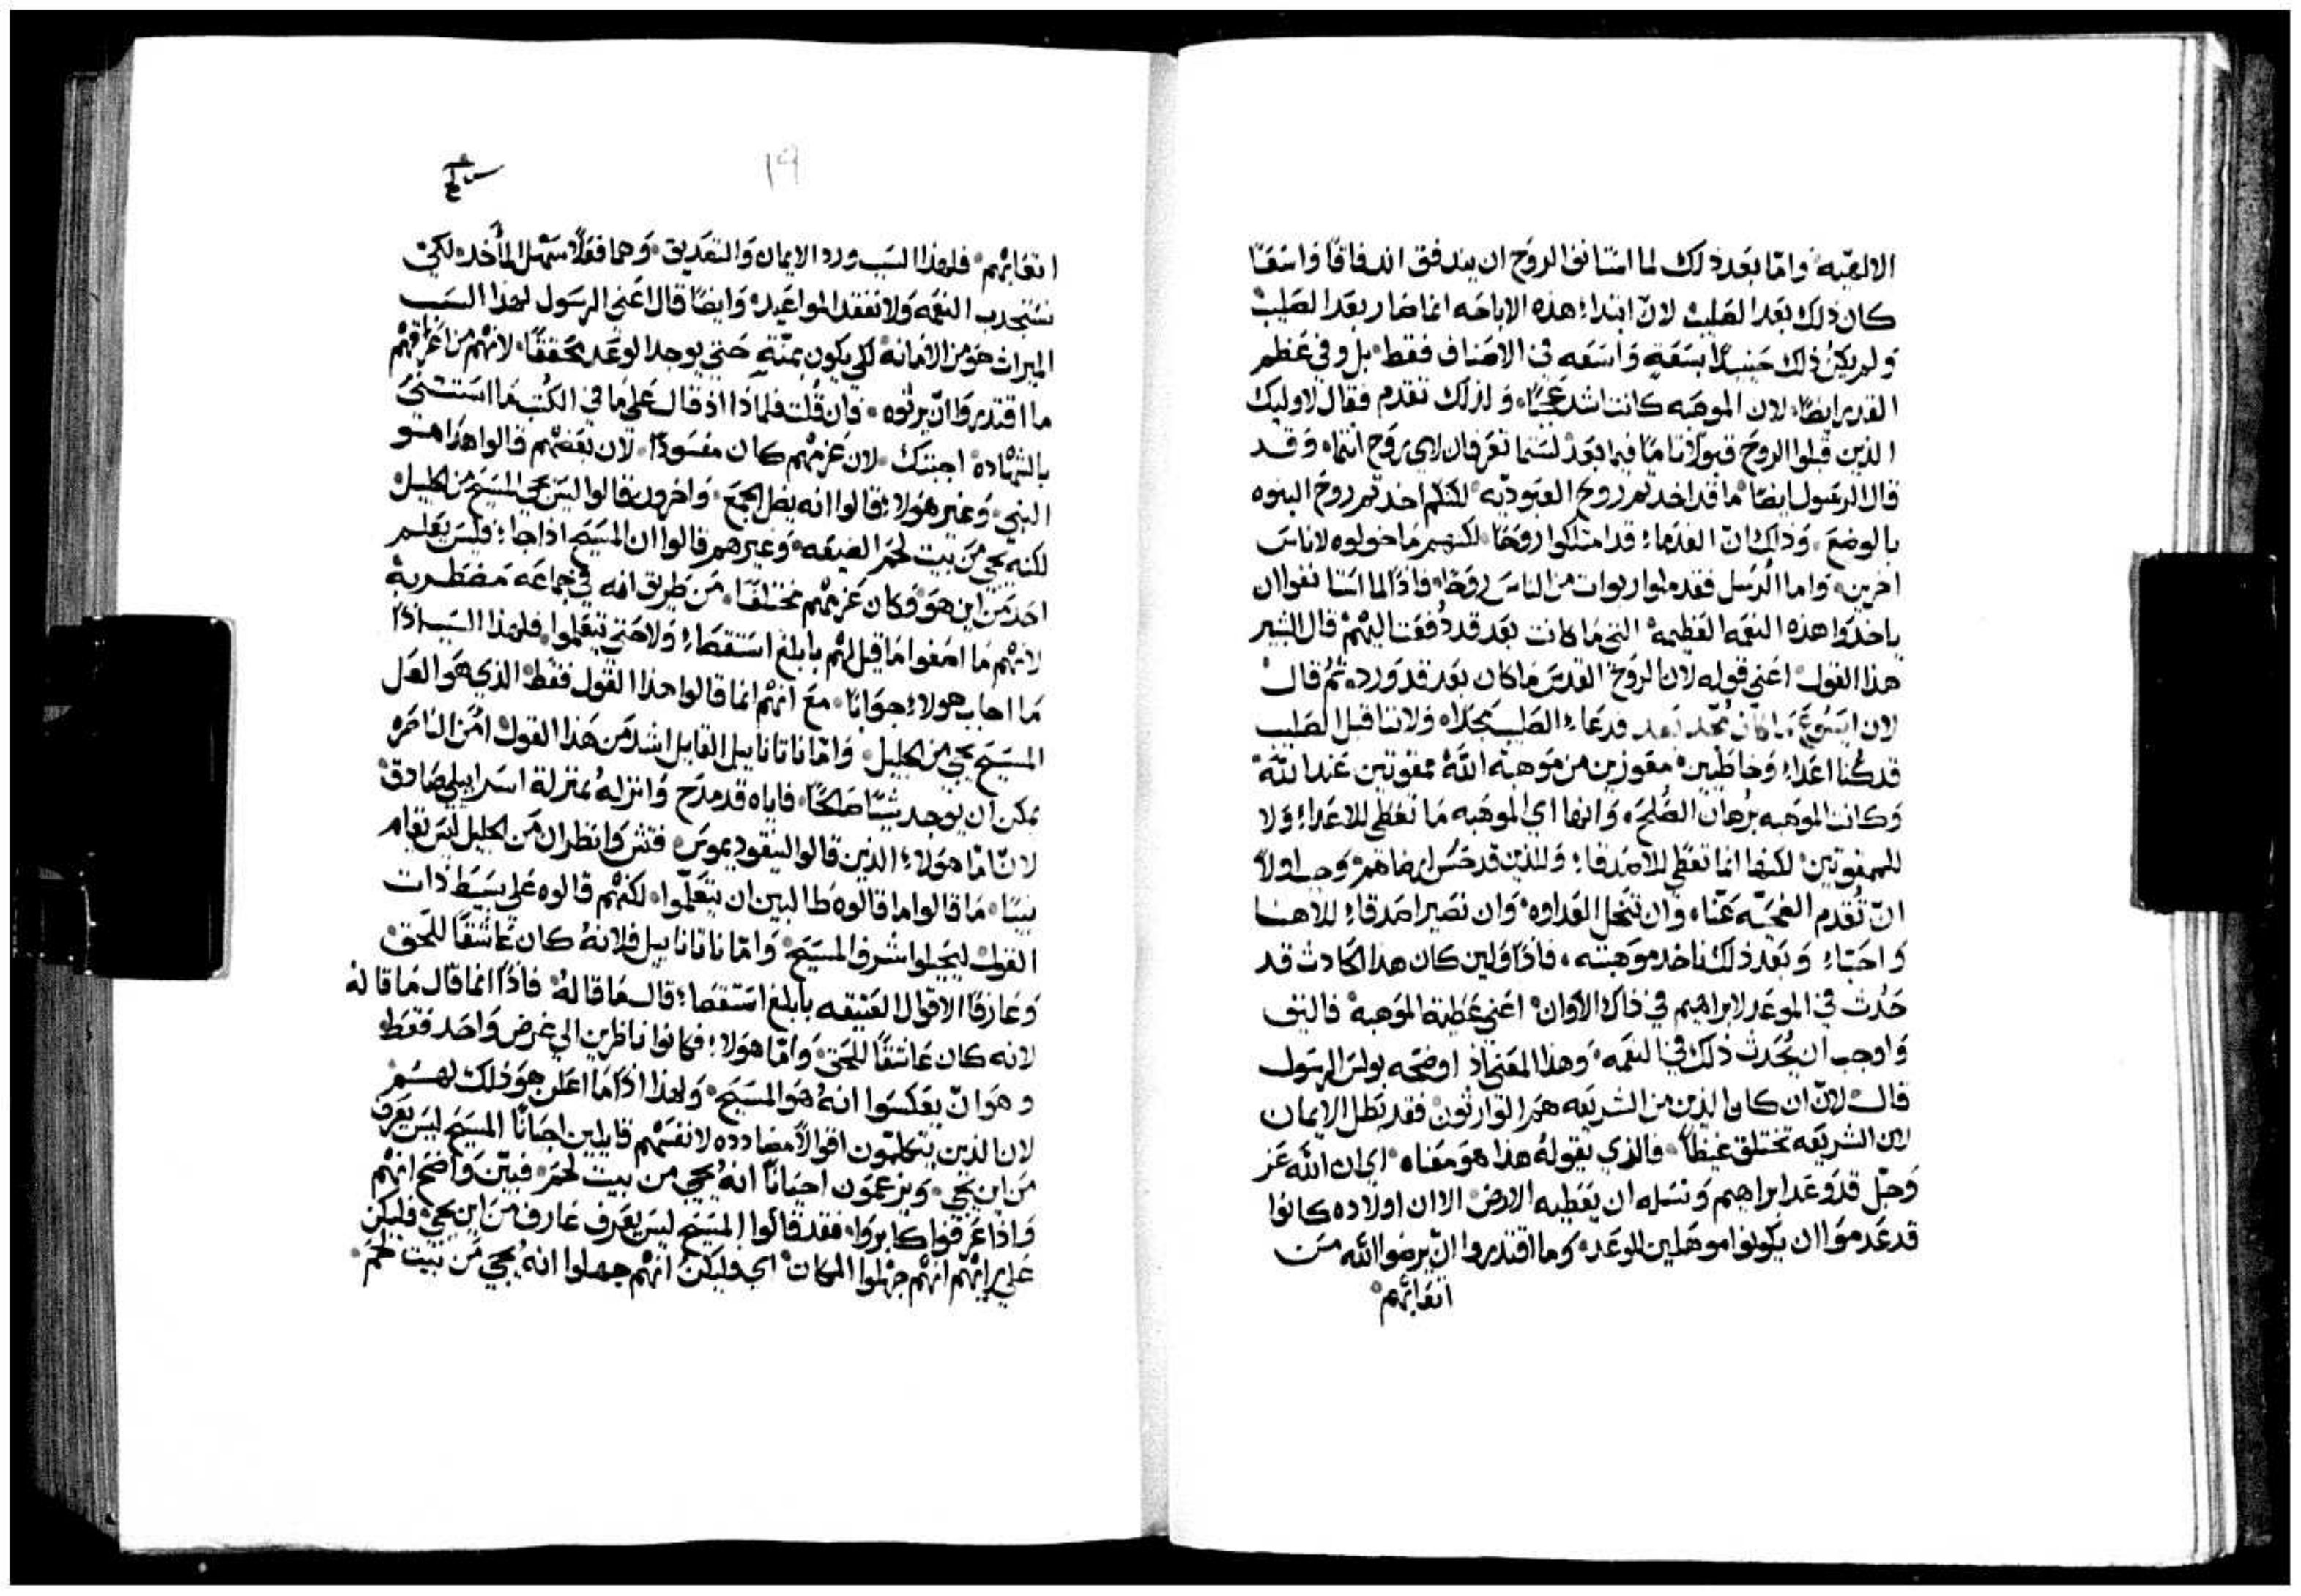 الالهيه وامّا بعَد ذلك لما استانف الروَح ان يندفق اندفاقًا واسَعًا
كان ذلك بعَد الصَليبْ لانّ ابتداء هذه الاباحَه انما صَار بعَد الصَليبْ
وَلم يكنْ ذلك حَينيذًا بسَعَةٍ وَاسَعَه في الاصَناف فقط بل وفي عَظم
القدر ايضًا لان الموهَبه كانت اشد عَجبًا وَلذلك تقدم فقال لاوليك
الذين قبلوا الروحَ قبولًا تامًا فيما بعَدْ لسَتما تعَرفان لاي روَح انتما وَقد
قال الرسَول ايضًا ما قد اخدتم روح العبودّيه لكنكم اخدتم روحَ البنوه
بالوضعَ وَذلك انّ القدمَاء قد امتلكوا روَحًا لكنهم مَا خولوه لاناسَ
اخرين وَاما الرسَل فقد ملوا ربوات من الناسَ روَحًا فاذًا لما اسَتانفوا ان
ياخدَوا هذه النعَمه العَظيمه التي مَا كانت بعَد قد دُفعَت اليهْم قال البشير
هذا القول اعَني قوله لان الروَحْ القدسَ مَا كان بعَد قد وَرد ثمُ قال
لان ايسَوع مَا كان مُجّد بعد فدعَاء الصَليبَ مجدًا وَلاننا قبل الصَليب
قد كنُا اعَداء وَخاطيين معَوزين من مَوهبة اللَّه ممقوتين عَند اللَّه
وَكانت الموَهبه برهَان الصُلحَ وَانها اي الموَهبه مَا تعَطي للاعَداء وَلا
للممقوتين لكنها انما تعَطي للاصَدقاء وَللذين قد حسُن ارضاهم وَجب اولاً
انّ تُقدم الضحَيّه عَنّا وَان تنحَل العَداوه وَان نصَير اصَدقاء لله هنا
وَاحَبّاء وَبعَد ذلك ناخد موَهبته فاذًا وَلين كان هذا الحَادث قد
حَدُث في الموعَد لابراهيم في ذاك الاوان اعَني عَطية الموَهبة فاليق
وَاوجب ان يُحَدث ذلك في النعَمه وَهذا المعَنى اذ اوضحَه بولسَ الرسَول
قال لانّ ان كان الذين من الشريعَه همَ الوارثون فقد بَطل الايمان
لان الشريعَه تختلق غيظاً فالذي يقولهُ هذا هوَ معَناه اي ان اللَّه عَز
وَجلّ قد وَعَد ابراهيم وَنسَله ان يعَطيه الارض الا ان اولاده كانوا
قد عَدموَا ان يكونوا موهَلين للوعَد وما اقتدروا انّ يرضوا اللَّه مَن
اتعَابهم
١٩
اتعَابهم فلهَذا السَبب ورد الايمان وَالتصَديق وَهما فعَلًا سَهل المأخد لكيْ
نستجدب النعَمه وَلا نفقد الموَاعَيد وَايضًا قال اعَني الرسَول لهَذا السَبب
الميراث هوَ من الامَانه لكي يكون بمنّةٍ حَتى يوجد الوعَد محَققًا لانهْم من اعَراقهْم
ما اقتدروَا انّ يرثوه فان قُلت فلماذا اذ قال عَلى مَا في الكتُب مَا استثنى
بالشهْاده اجبتك لان عَزمهْم كان مفسَودًا لان بعَضهْم قالوا هذا هَو
النبي وَغير هوَلاء قالوا انه يضل الجمعَ وَاخرون قالوا ليسَ يجي المسَيحَ من الجليل
لكنه يجي مَن بيت لحَم الضيعَه وَغيرهم قالوا ان المسَيحَ اذا جاء فليسَ يعَلم
احَد مَن اين هوَ فكان عَزمهْم مختلفًا مَن طريق انه في جماعَه مَضطربة
لانهْم مَا اصَغوا مَا قيل لهْم بابلغ اسَتقصَاء وَلا حَتى يتعَلموا فلهَذا السَبب اذًا
مَا اجاب هوَلاء جوَابًا معَ انهْم انما قالوا هذا القول فقط الذي هوَ العل
المسَيحَ يجي من الجليل وَامّا ناتانا ييل القايل اشد مَن هَذا القول امَن الناصَره
يمكن ان يوجد شيئًا صَالحًا فاياه قد مدَح وَانزلهُ بمنزلة اسَراييلي صَادق
لانّ امّا هوَلاء الذين قالوا لنيقوديموسَ فتش وَانظر ان مَن الجليل ليسَ يقام
نبيًا مَا قالوا ما قالوه طالبين ان يتعَلّموا لكنهْم قالوه عَلى بسَيط ذات
القول ليجَلوا شرف المسَيحَ وَامّا ناتانا ييل فلانهُ كان عَاشقًا للحَق
وَعَارفًا الاقوَال العَتيقه بابلغ اسَتقصَاء قال مَا قالهُ فاذًا انما قال مَا قاله
لانه كان عَاشقًا للحَق وَامّا هوَلاء فكانوا ناظرين الي غرض وَاحَد فقط
وهوَ انّ يعَكسَوا انهُ هوَ المسَيحَ وَلهذا اذًا مَا اعَلن هوَ ذلك لهسُم
لان الذين يتكلمّون اقوالًا مضادده لانفسَهْم قايلين احيَانًا المسَيحَ ليسَ يعَرف
مَن اين يجي وَيزعمَون احيَانًا انهُ يجي من بيت لحَم فبيّن وَاضَح انهْم
وَاذا عَرفوا كابروَا فقد قالوا المسَيحَ ليسَ يعَرف عَارف مَن اين يجي فليكن
عَلي رايهْم انهْم جهْلوا المكان اي فليكن انهْم جهَلوا انهُ يجي مَن بيت لحَم